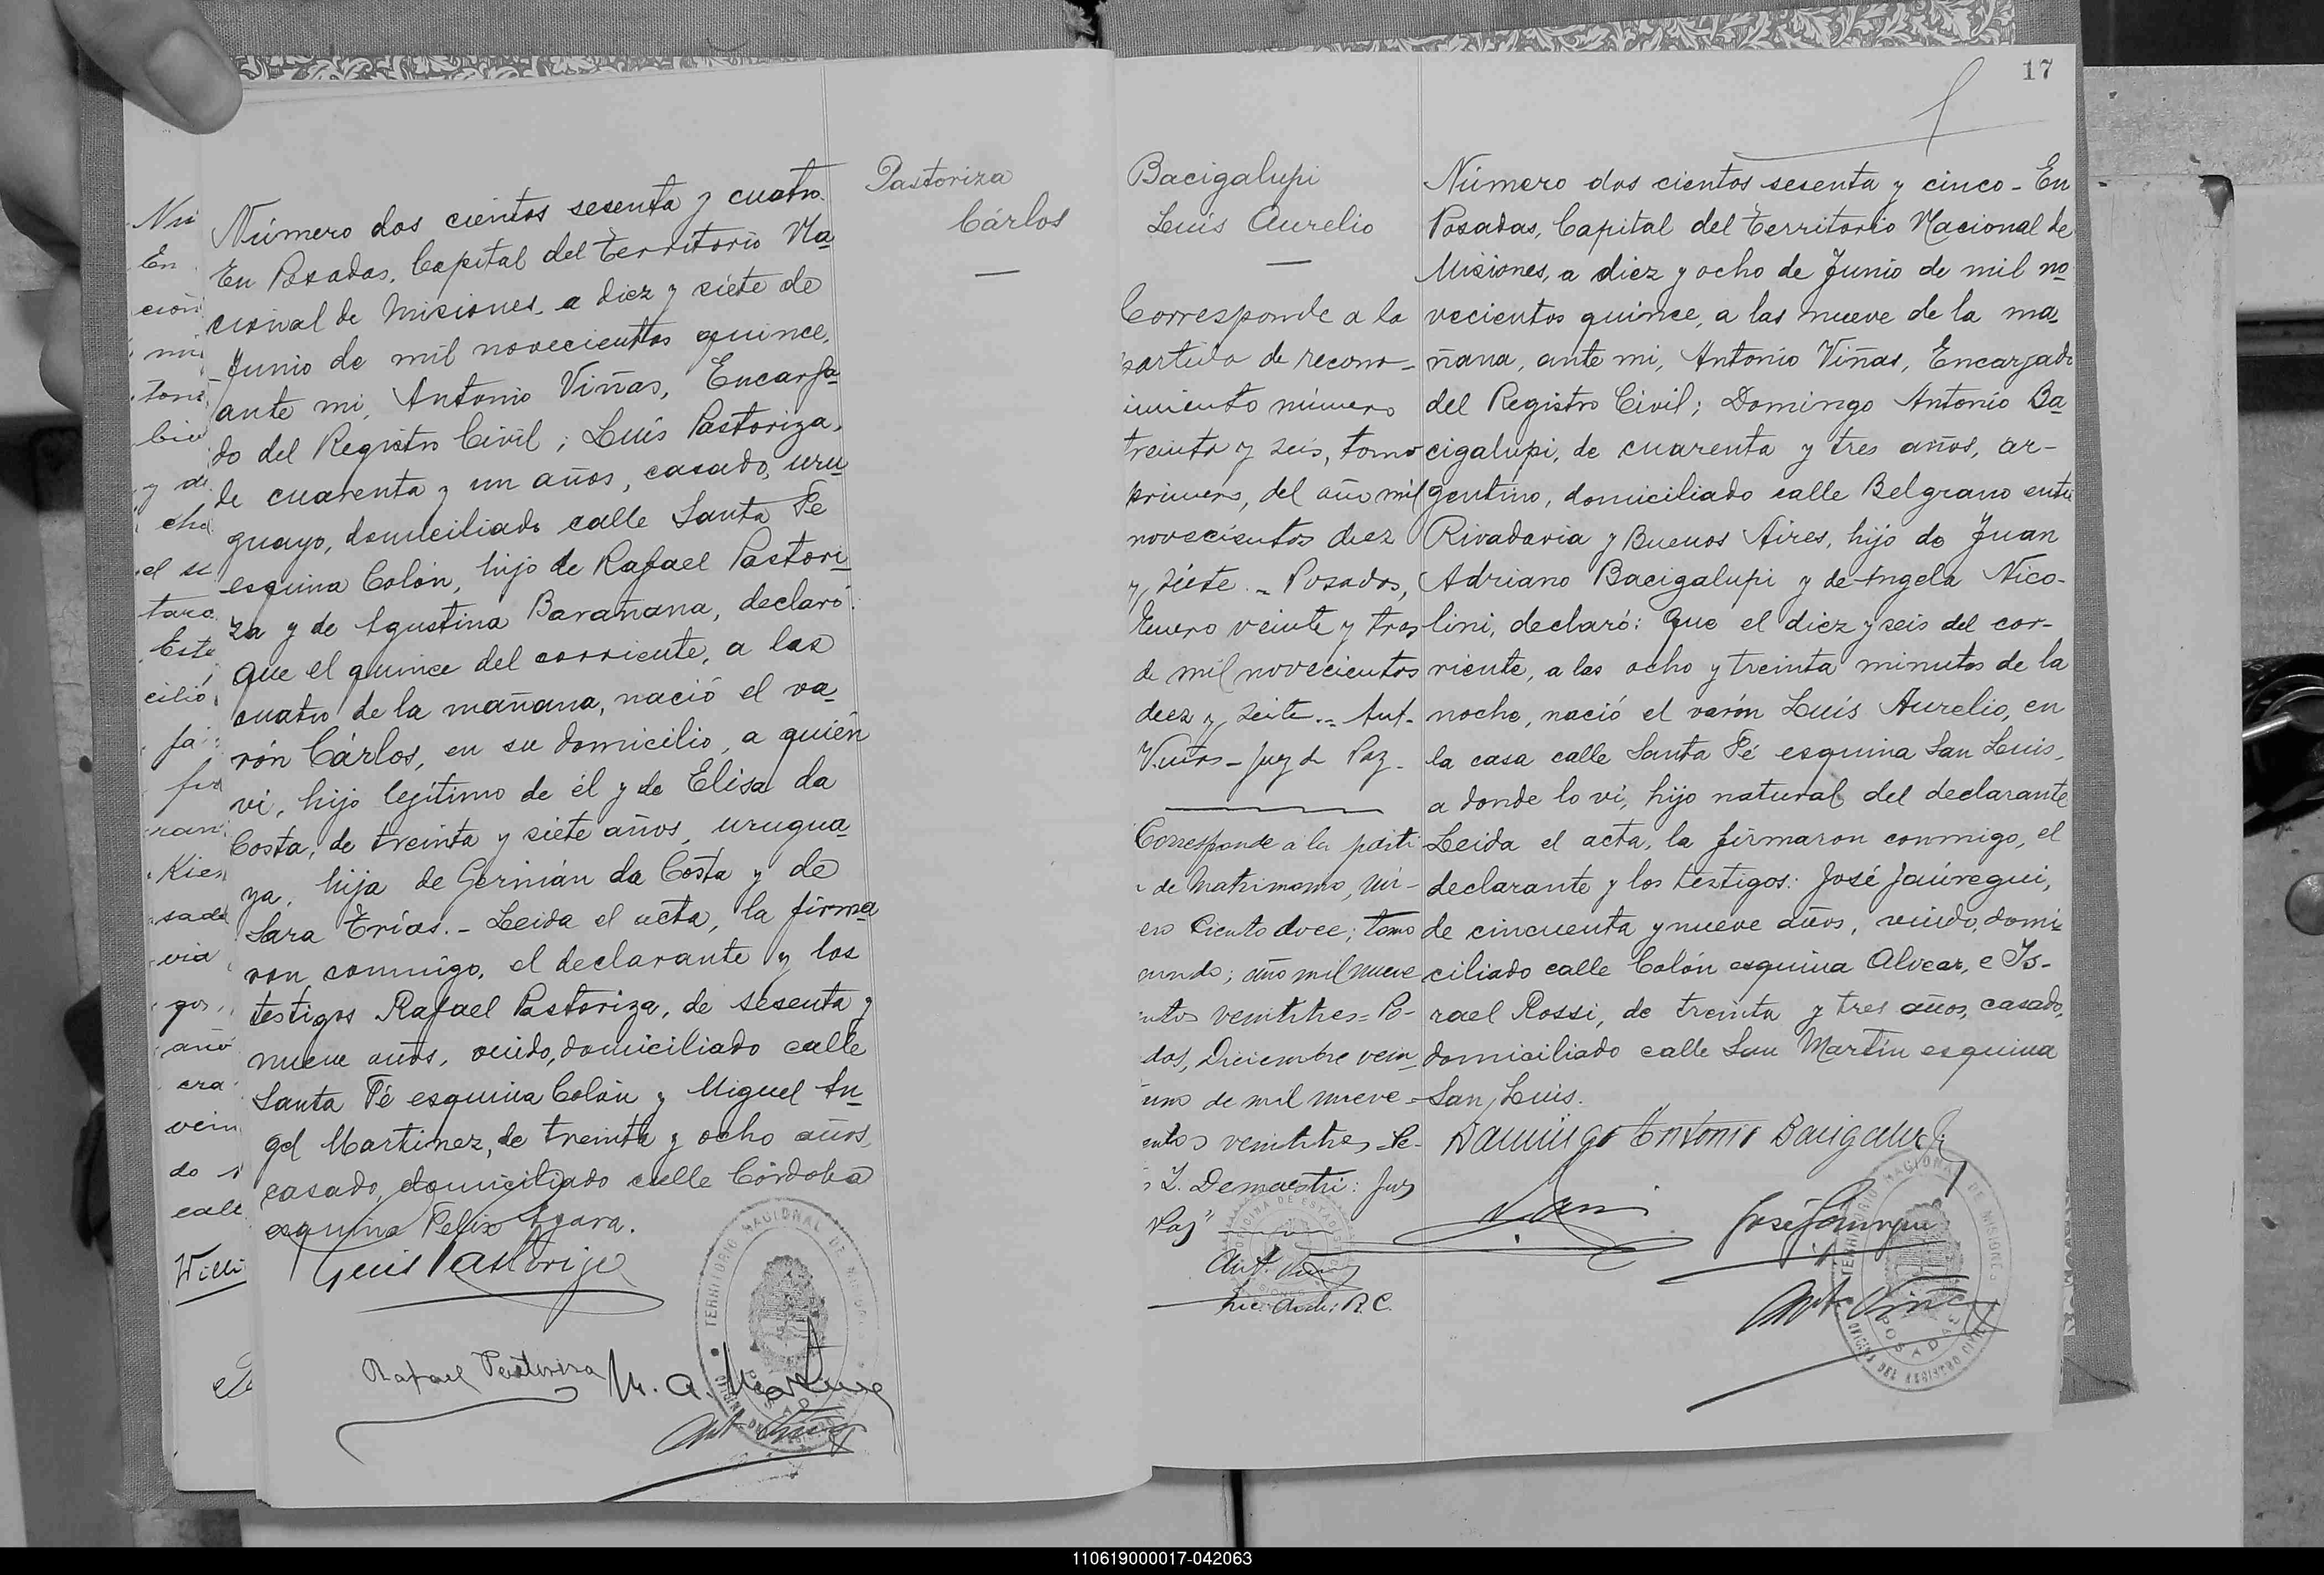 Número dos cientos sesenta y cuatro.
En Posadas, Capital del Territorio Na
cional de Misiones, a diez y siete de
Junio de mil novecientos quince,
ante mi, Antonio Viñas, Encarga
do del Registro Civil; Luis Pastoriza,
de cuarenta y un años, casado, uru
guayo, domiciliado calle Santa Fé
esquina Colón, hijo de Rafael Pastori
za y de Agustina Barañana, declaró:
Que el quince del corriente, a las
cuatro de la mañana, nació el va
rón Cárlos, en su domicilio, a quién
vi, hijo legítimo de él y de Elisa da
Costa, de treinta y siete años, urugua
ya, hija de Germán da Costa y de
Sara Trías.- Leida el acta, la firma
ron conmigo, el declarante y los
testigos Rafael Pastoriza, de sesenta y
nueve años, viudo, domiciliado calle
Santa Fé esquina Colón y Miguel An
gel Martinez, de treinta y ocho años,
casado, domiciliado calle Córdoba
esquina Felix Azara.
Luis Pastoriza
Rafael Pastoriza M. A. Martinez
Ant. Viñas
TERRITORIO NACIONAL DE MISIONES
Pastoriza
Cárlos
17
Bacigalupi
Luis Aurelio
Corresponde a la
partida de recono-
imiento número
treinta y seis, tomo
primero, del año mil
novecientos diez
y siete.- Posadas,
Enero veinte y tres
de mil novecientos
diez y siete.- Ant.
Viñas - Juez de Paz.
Corresponde a la parti
de Matrimonio, nú-
ero ciento doce; tomo
undo; año mil nueve
intos veintitres= Po-
das, Diciembre vein
uno de mil nueve
entos veintitres
I. Demaestri: Juez
Paz"
Ant. Viñas
R. C.
Número dos cientos sesenta y cinco - En
Posadas, Capital del Territorio Nacional de
Misiones, a diez y ocho de Junio de mil no
vecientos quince, a las nueve de la ma
ñana, ante mi, Antonio Viñas, Encargado
del Registro Civil; Domingo Antonio Ba
cigalupi, de cuarenta y tres años, ar-
gentino, domiciliado calle Belgrano entre
Rivadavia y Buenos Aires, hijo de Juan
Adriano Bacigalupi y de Angela Nico-
lini, declaró: Que el diez y seis del cor-
riente, a las ocho y treinta minutos de la
noche, nació el varón Luis Aurelio, en
la casa calle Santa Fé esquina San Luis,
a donde lo ví, hijo natural del declarante
Leida el acta, la firmaron conmigo, el
declarante y los testigos: José Jaúregui,
de cincuenta y nueve años, viudo, domi
ciliado calle Colón esquina Alvear, e Is-
rael Rossi, de treinta y tres años, casado,
domiciliado calle San Martín esquina
San Luis.
Domingo Antonio Bacigalupi
José Jaúregui
Ant. Viñas
TERRITORIO NACIONAL DE MISIONES
OFICINA DEL REGISTRO CIVIL
POSADAS
110619000017-042063